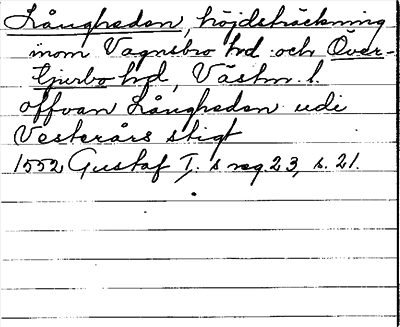 Långheden, höjdsträckning
inom Vagnsbro hd och Över-
Tjurbo hd, Västm. l.
offvan Långhedan udi
Vesterårs stigt
1552 Gustaf I. s reg. 23, s. 21.